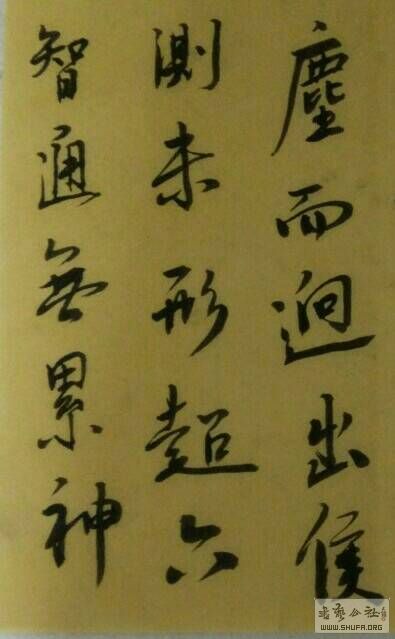 智通無累神
測未形超六
塵而迥出隻
书艺公社
WWW.SHUFA.ORG